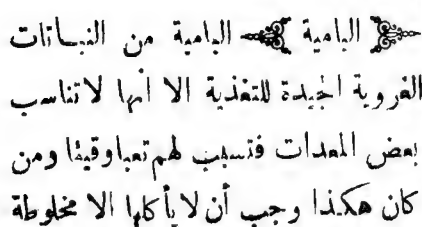 البامية البامية من النباتات
الغروية الجيدة للتغذية الا أنها لاتناسب
بعض المعدات فتسبب لهم تعبا وقيئا ومن
كان هكذا وجب أن لا يأكلها الا مخلوطة